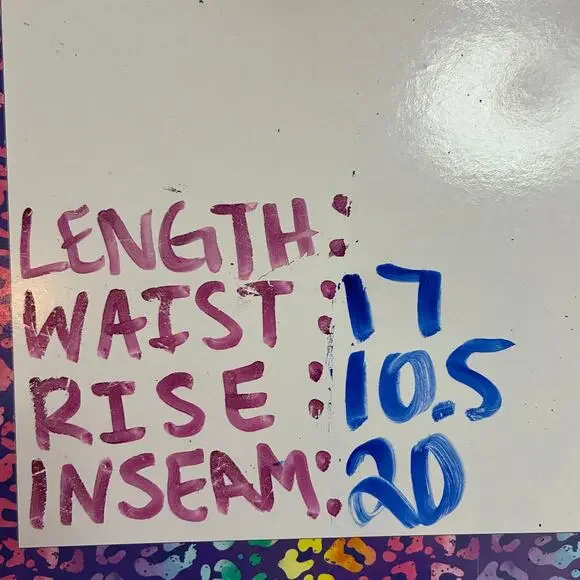 LENGTH:
WAIST: 17
RISE: 10.5
INSEAM: 20